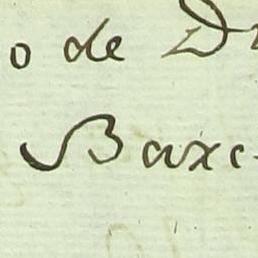 o de D
Baxc